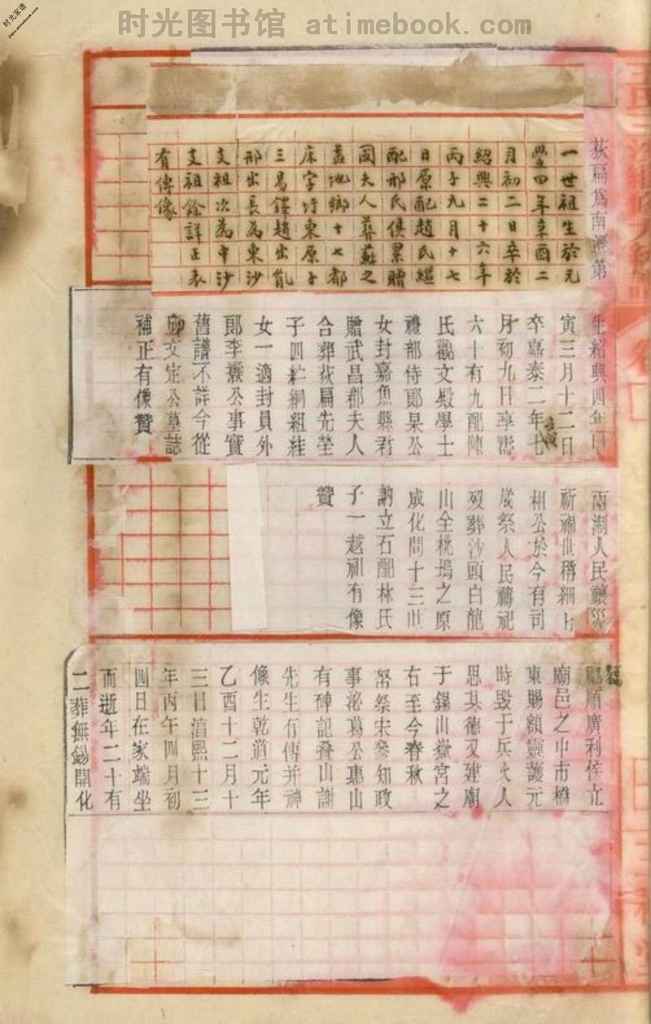 时光图书馆 - atimebook.com
荻扁為南遷第
一世祖生於元
年辛酉二
月初二日卒於
紹興二十六年
丙子九月十七
日原配趙氏繼
配邢氏俱累贈
國夫人葬蘇之
蓋地鄉十七都
床字圩東原子
三昜鐸趙出
邢出長為東沙
支祖次為中沙
支祖餘詳正表
有傳像
生紹興四年甲
寅三月十二日
卒嘉泰二年七
月初九日享壽
六十有九配陳
氏觀文殿學士
禮部侍郎杲公
女封嘉魚縣君
贈武昌郡夫人
合葬荻扁先塋
子四紵綱組絓
女一適封員外
郎李公事實
舊譜不詳今從
文定公墓誌
補正有像贊
兩湖人民
祈禱世稱
相公於今有司
歲祭人民蔣祀
歿葬沙頭白龍
山全桃塢之原
成化間十三世
訥立石配林氏
子一越祖有像
贊
順廣利侯立
廟邑之中市橋
東賜額靈護元
時毀于兵火人
思其德又建廟
于錫山嶽宮之
右至今春秋
祭宋參知政
事泌葛公惠山
有碑記疊山謝
先生有傳并神
像生乾道元年
乙酉十二月十
三日淳熙十三
年丙午四月初
四日在家端坐
而逝年二十有
二葬無錫開化